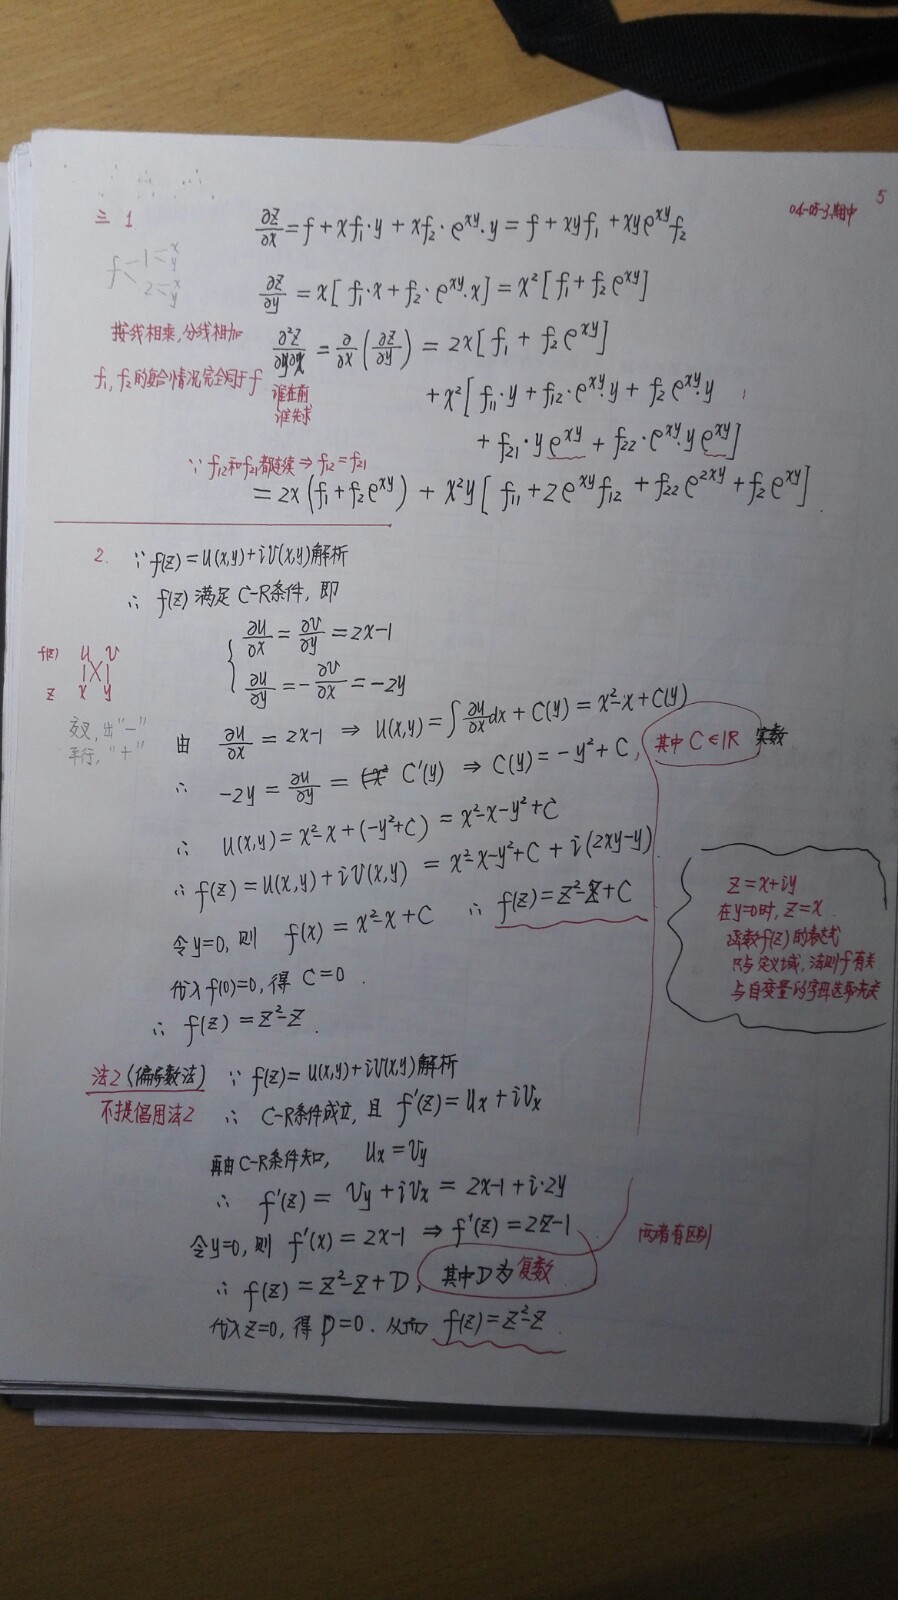 5
04-05-3.期中
三 1 ∂z/∂x = f + xf₁·y + xf₂·e^{xy}·y = f + xyf₁ + xye^{xy}f₂
f 1 x y 2 x y
∂z/∂y = x[f₁·x + f₂·e^{xy}·x] = x²[f₁ + f₂e^{xy}]
按线相乘,分线相加
∂²z/∂y∂x = ∂/∂x(∂z/∂y) = 2x[f₁ + f₂e^{xy}]
f₁, f₂的复合情况完全同于f
谁在前
谁先求
+ x²[f₁₁·y + f₁₂·e^{xy}·y + f₂e^{xy}·y
+ f₂₁·y e^{xy} + f₂₂·e^{xy}·y e^{xy}]
∵ f₁₂和f₂₁都连续 ⇒ f₁₂ = f₂₁
= 2x(f₁+f₂e^{xy}) + x²y[f₁₁+2e^{xy}f₁₂ + f₂₂e^{2xy} + f₂e^{xy}].
2. ∵ f(z) = u(x,y)+iv(x,y)解析
∴ f(z) 满足 C-R条件, 即
{ ∂u/∂x = ∂v/∂y = 2x-1
∂u/∂y = -∂v/∂x = -2y
f(z) u v
z x y
交叉, 出"-"
平行, "+"
由 ∂u/∂x = 2x-1 ⇒ u(x,y) = ∫∂y/∂x dx + C(y) = x²-x+C(y)
∴ -2y = ∂u/∂y = C'(y) ⇒ C(y) = -y²+C, 其中 C∈IR 实数
∴ u(x,y) = x²-x+(-y²+C) = x²-x-y²+C
∴ f(z) = u(x,y)+iv(x,y) = x²-x-y²+C + i(2xy-y).
令y=0, 则 f(x) = x²-x+C ∴ f(z) = z²-z+C
代入 f(0)=0, 得 C=0.
∴ f(z) = z²-z.
z = x+iy
在y=0时, z=x.
函数f(z)的表达式
只与定义域, 法则f有关
与自变量的字母选取无关
法2 (偏导数法) ∵ f(z) = u(x,y)+iv(x,y)解析
不提倡用法2 ∴ C-R条件成立, 且 f'(z) = uₓ+ivₓ
再由C-R条件知, uₓ = v_y
∴ f'(z) = v_y+ivₓ = 2x-1+i·2y
令y=0, 则 f'(x) = 2x-1 ⇒ f'(z) = 2z-1
两者有区别
∴ f(z) = z²-z+D, 其中D为复数.
代入z=0, 得 D=0. 从而 f(z) = z²-z.